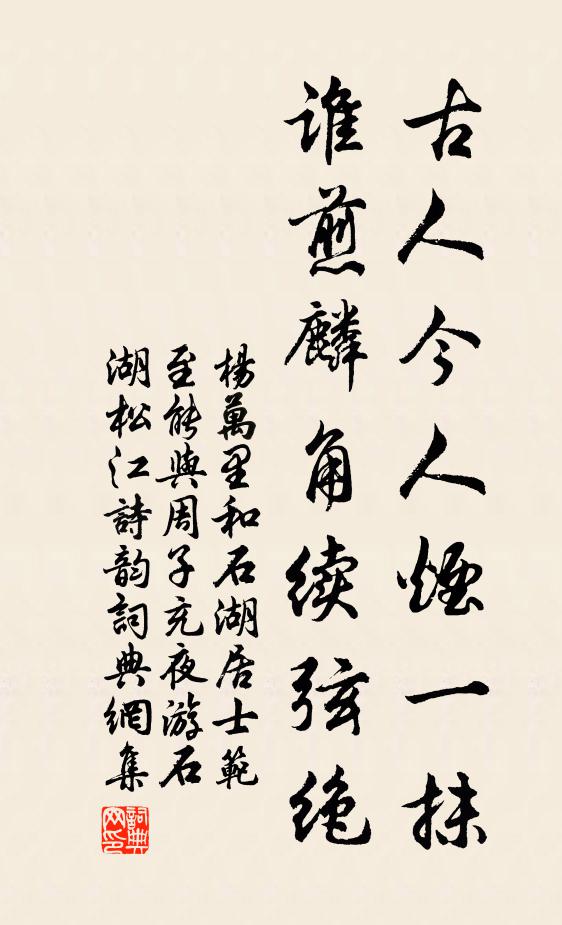 古人今人煙一抹
誰煎麟角續弦絶
楊萬里和石湖居士範
至能與周子充夜游石
湖松江詩韵詞典網集
詞典
网印